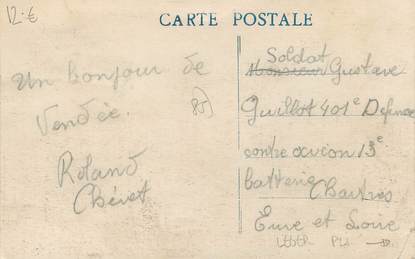 12.€
CARTE POSTALE
Un bonjour de
Vendée.
Roland
Soldat
Monsieur Gustave
Guillot 401e Defense
contre avion 13e
batterie Chartres
Eure et Loire